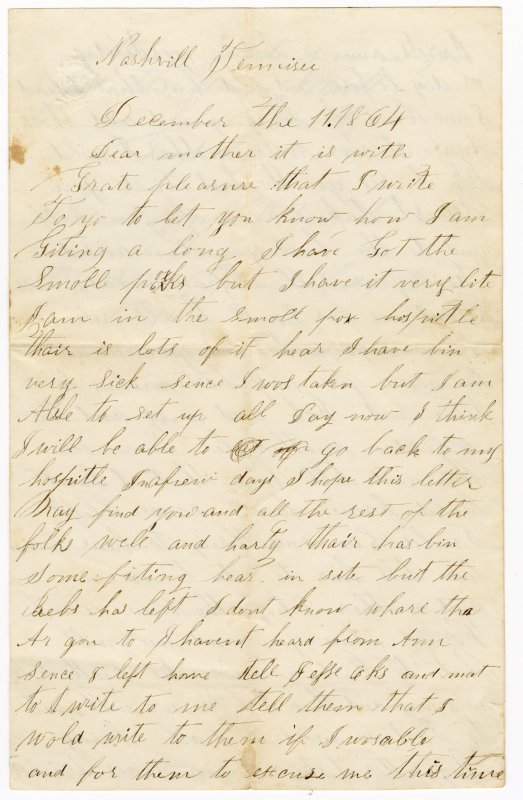 Nashvill Tennisee
December the 11. 1864
Dear mother it is with
Grate pleasure that I write
To yo to let you know how I am
Giting a long I have Got the
Smoll but I have it very lite
I am in the Smoll pox hospitle
thair is lots of it hear I have bin
very Sick sence I wos taken but I am
Able to set up all Day now I think
I will be able to go back to my
hospitle days I hope this letter
May find you and all the rest of the
folks well and harty thair has bin
Some fiting hear in site but the
has left I dont know whare tha
Ar gon to I havent heard from Ann
Sence I left home tell and
to write to me tell them that I
wold write to them if I wos able
and for them to excuse me this time